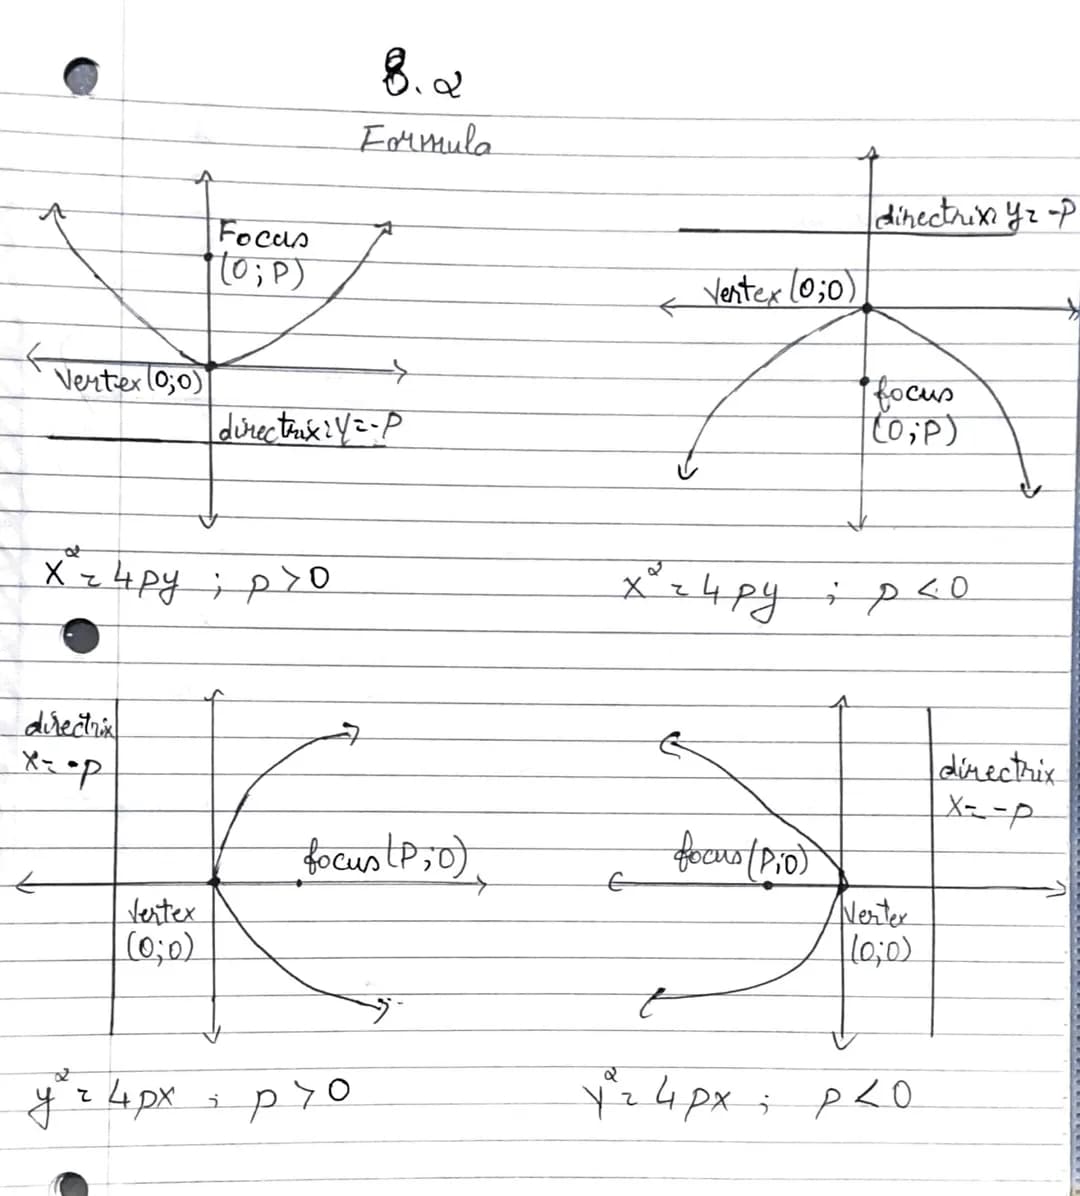 8.2
Formula
Focus
(0;P)
Vertex (0;0)
directrix: y=-P
x²=4py ; p>0
directrix y=-P
Vertex (0;0)
focus
(0;P)
x²=4py ; p<0
directrix
x=-p
focus (P;0)
Vertex
(0;0)
y²=4px ; p>0
directrix
x=-p
focus (P;0)
Vertex
(0;0)
y²=4px ; p<0